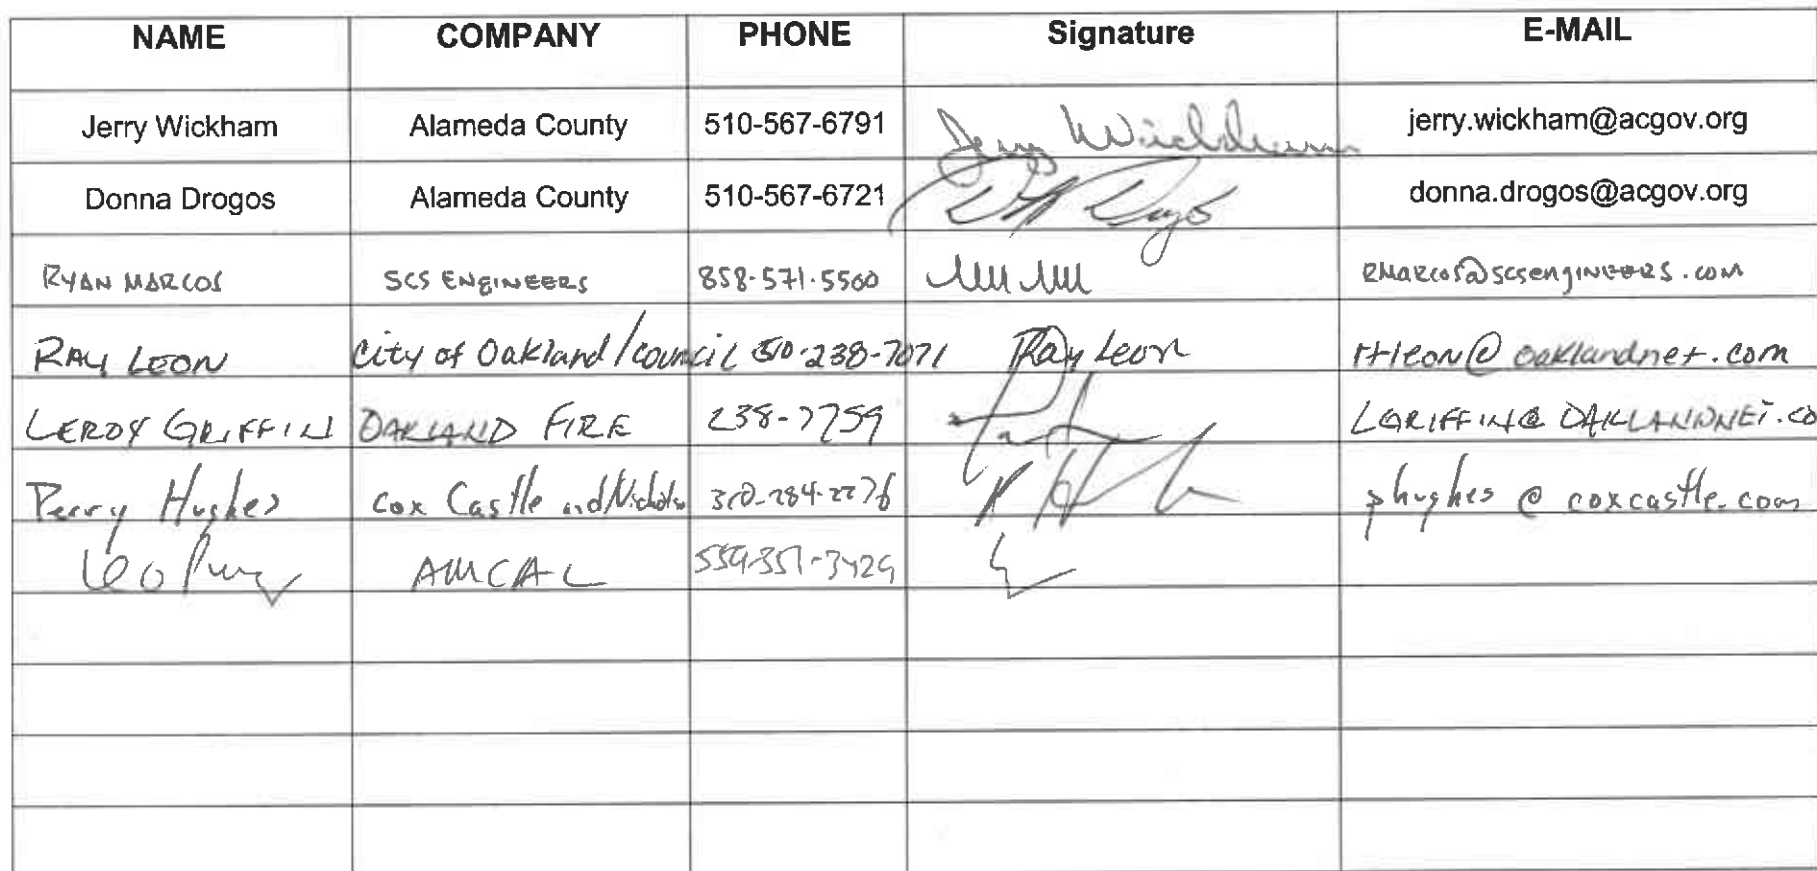 NAME COMPANY PHONE Signature E-MAIL
Jerry Wickham Alameda County 510-567-6791 Jerry Wickham jerry.wickham@acgov.org
Donna Drogos Alameda County 510-567-6721 donna.drogos@acgov.org
RYAN MARCOS SCS ENGINEERS 858-571-5500 RMARCOS@SCSENGINEERS.COM
RAY LEON City of Oakland/Council 510-238-7071 Ray Leon @oaklandnet.com
LEROY GRIFFIN OAKLAND FIRE 238-7759 LGRIFFIN@OAKLANDNET.CO
Perry Hughes Cox Castle and 310-284-2276 phughes@coxcastle.com
Leo AMCAL